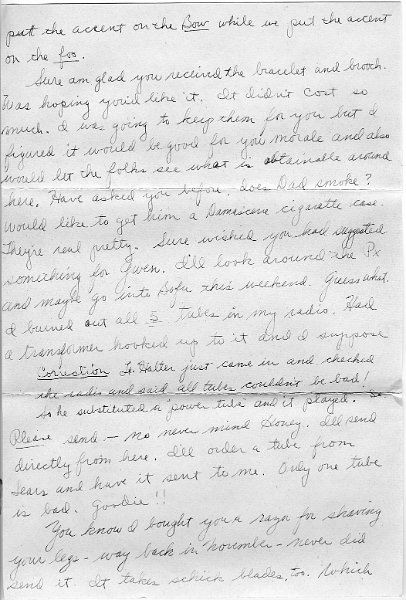 put the accent on the Bow while we put the accent
on the foo.
Sure am glad you received the bracelet and broch.
Was hoping you'd like it. It didn't cost so
much. I was going to keep them for you but I
figured it would be good for you morale and also
would let the folks see what is obtainable around
here. Have asked you before. Does Dad smoke?
Would like to get him a Damascene cigarette case.
They're real pretty. Sure wished you had suggested
something for Gwen. I'll look around the Px
and maybe go into Sofu this weekend. Guess what.
I burned out all 5 tubes in my radio. Had
a transformer hooked up to it and I suppose
Correction Lt. Halter just came in and checked
the radio and said all tubes couldn't be bad!
So he substituted a "power tube" and it played.
Please send — no never mind Honey. I'll send
directly from here. I'll order a tube from
Sears and have it sent to me. Only one tube
is bad. Goodie!!
You know I bought you a razor for shaving
your legs - way back in November - never did
send it. It takes schick blades, too. Which